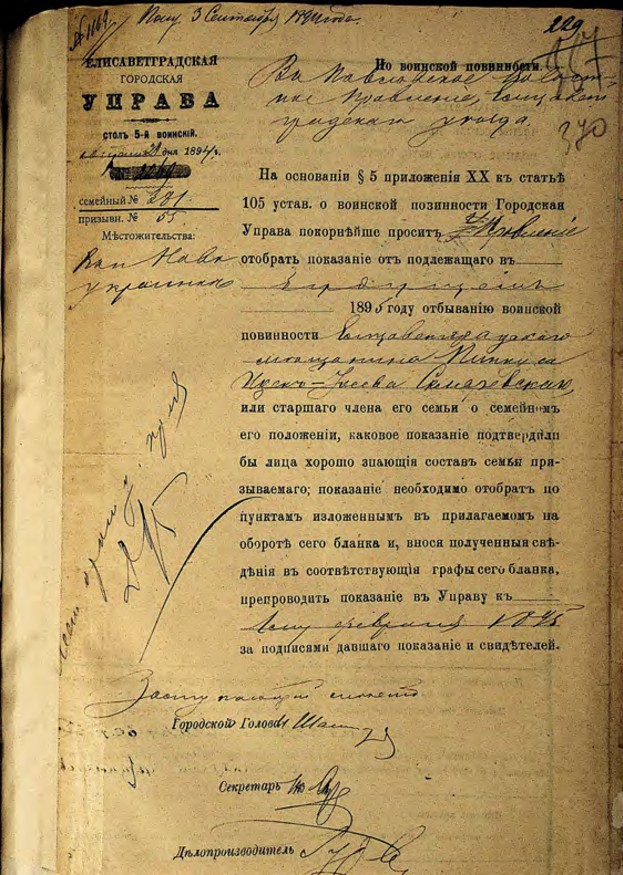 № 1169. Пол. 3 Сентября 1894 года.
229
370
ЕЛИСАВЕТГРАДСКАЯ
ГОРОДСКАЯ
УПРАВА
СТОЛЪ 5-й ВОИНСКІЙ.
августа дня 1894 г.
№ 2269
семейный № 281
призывн. № 55
Мѣстожительства:
Ново
украинка
По воинской повинности.
Въ Павловское Волост-
ное Правленіе, Елисавет-
градскаго уѣзда.
На основаніи § 5 приложенія XX къ статьѣ
105 устав. о воинской позинности Городская
Управа покорнѣйше проситъ Правленіе
отобрать показаніе отъ подлежащаго въ
будущемъ
1895 году отбыванію воинской
повинности Елисаветградскаго
мѣщанина Пинкуса
Ицко-Іосева
или старшаго члена его семьи о семейномъ
его положеніи, каковое показаніе подтвердили
бы лица хорошо знающія составъ семьи при-
зываемаго; показаніе необходимо отобрать по
пунктамъ изложеннымъ въ прилагаемомъ на
оборотѣ сего бланка и, внося полученныя свѣ-
дѣнія въ соотвѣтствующія графы сего бланка,
препроводить показаніе въ Управу къ
1му февраля 1895
за подписями давшаго показаніе и свидѣтелей.
Заступающій мѣсто
Городской Голова
Секретарь
Дѣлопроизводитель